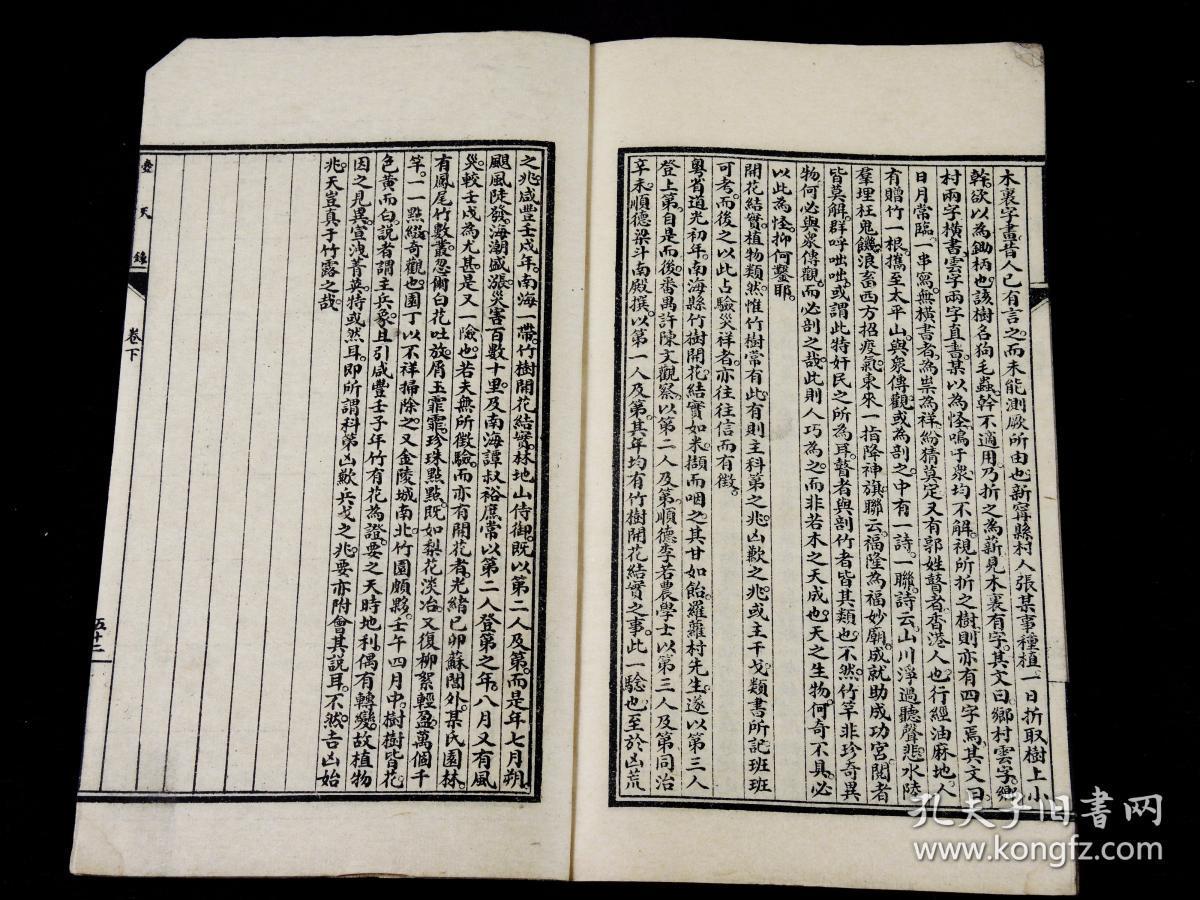 木裏字畫昔人已有言之而未能測厥所由也新寧縣村人張某事種植一日折取樹上小
幹欲以為鋤柄也該樹名狗毛蟲幹不適用乃折之為薪見木裏有字其文曰鄉村雲字鄉
村兩字橫書雲字兩字直書某以為怪鳴于衆均不解視所折之樹則亦有四字焉其文曰
日月常臨一串寫無橫書者為祟為祥紛猜莫定又有郭姓瞽者香港人也行經油麻地人
有贈竹一根攜至太平山與衆傳觀或為剖之中有一詩一聯詩云山川淨過聽聲悲水陸
羣理枉鬼饑浪畜西方招疫氣東來一指降神旗聯云福隆為福妙廟成就助成功宮閱者
皆莫解群呼咄咄或謂此特奸民之所為耳瞽者與剖竹者皆其類也不然竹竿非珍奇異
物何必與衆傳觀而必剖之哉此則人巧為之而非若木之天成也天之生物何奇不具必
以此為怪抑何鑿耶
開花結實植物類然惟竹樹常有此有則主科第之兆凶歉之兆或主干戈類書所記班班
可考而後之以此占驗災祥者亦往往信而有徵
粵省道光初年南海縣竹樹開花結實如米擷而咽之其甘如飴羅蘿村先生遂以第三人
登上第自是而後番禺許陳文觀察以第二人及第順德李若農學士以第三人及第同治
辛未順德梁斗南殿撰以第一人及第其年均有竹樹開花結實之事此一驗也至於凶荒
之兆咸豐壬戌年南海一帶竹樹開花結實林地山侍御既以第二人及第而是年七月朔
颶風陡發海潮盛漲災害百數十里及南海譚叔裕庶常以第二人登第之年八月又有風
災較壬戌為尤甚是又一險也若夫無所徵驗而亦有開花者光緒已卯蘇閶外某氏園林
有鳳尾竹數叢忽衕白花吐放屑玉霏霏珍珠點點既如梨花淡冶又復柳絮輕盈萬個千
竿一一點綴奇觀也園丁以不祥掃除之又金陵城南北竹園頗夥壬午四月中樹樹皆花
色黃而白說者謂主兵象且引咸豐壬子年竹有花為證要之天時地利偶有轉變故植物
因之見異宣洩菁英特或然耳即所謂科第凶歉兵戈之兆要亦附會其說耳不然吉凶始
兆天豈真于竹露之哉
壺天錄
卷下
五十二
孔夫子旧书网
www.kongfz.com